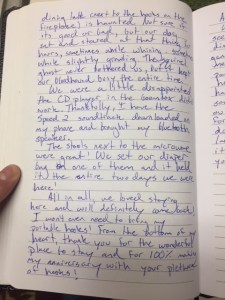 dining table (next to the books on the
fireplace) is haunted. Not sure if
its good or bad, but our dog
sat and stared at that thing for
hours, sometimes while whining and
while slightly growling. The
ghost never bothered us, but it kept
our bloodhound busy the entire time.
We were a little disappointed
the CD player in the
didn't work. Thankfully, I have the
Speed 2 soundtrack downloaded on
my phone and brought my bluetooth
speakers.
The stools next to the microwave
were great! We set our diaper
bag on one of them and it held
it the entire two days we were
here!
All in all, we loved staying
here and will definitely come back.
I won't even need to bring my
portable hooks! From the bottom of my
heart, thank you for the wonderful
place to stay and for 100% making
my anniversary with your plethora
of hooks!